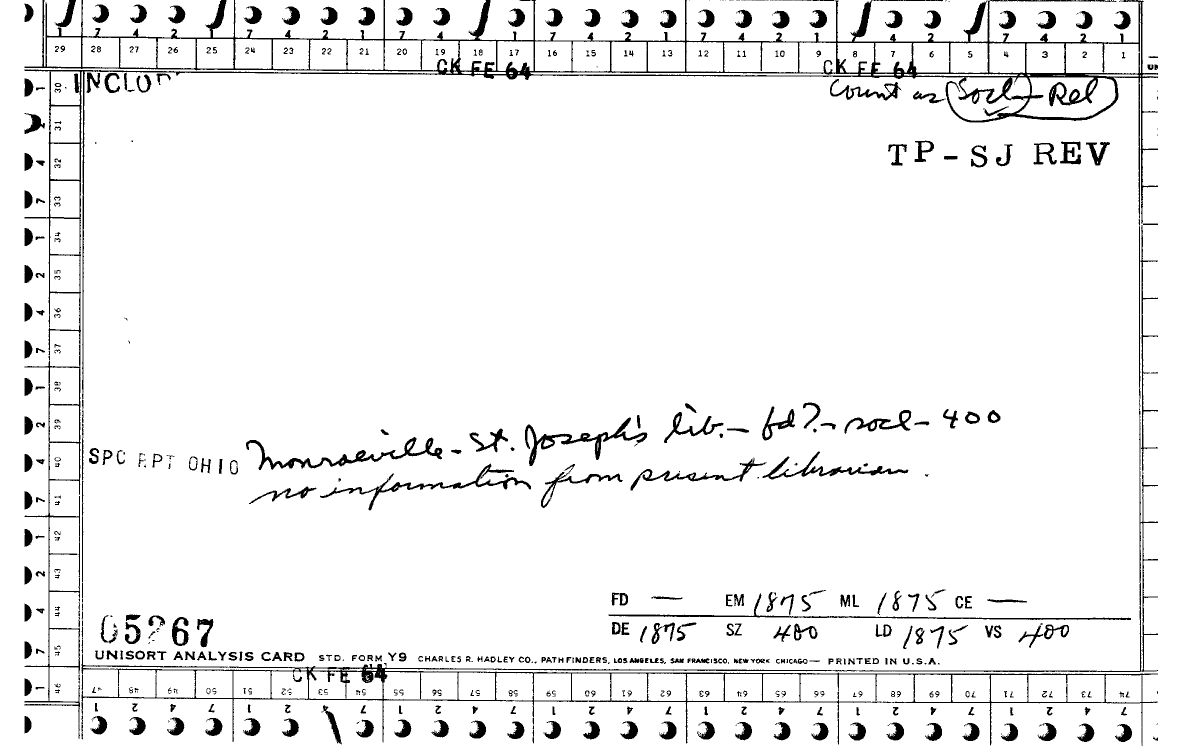 7 4 2 1 7 4 2 1 7 4 2 1 7 4 2 1 7 4 2 1 7 4 2 1 7 4 2 1
29 28 27 26 25 24 23 22 21 20 19 18 17 16 15 14 13 12 11 10 9 8 7 6 5 4 3 2 1
CK FE 64 CK FE 64
INCLUD
Count as Socl - Rel
TP - SJ REV
30
31
32
33
34
35
36
37
38
39
40
41
42
43
44
45
46
Monroeville - St. Joseph's lib. - fd? - socl - 400
SPC RPT OHIO
no information from present librarian.
FD — EM 1875 ML 1875 CE —
DE 1875 SZ 400 LD 1875 VS 400
05267
UNISORT ANALYSIS CARD STD. FORM Y9 CHARLES R. HADLEY CO., PATHFINDERS, LOS ANGELES, SAN FRANCISCO, NEW YORK CHICAGO — PRINTED IN U.S.A.
CK FE 64
47 48 49 50 51 52 53 54 55 56 57 58 59 60 61 62 63 64 65 66 67 68 69 70 71 72 73 74
1 2 4 7 1 2 4 7 1 2 4 7 1 2 4 7 1 2 4 7 1 2 4 7 1 2 4 7